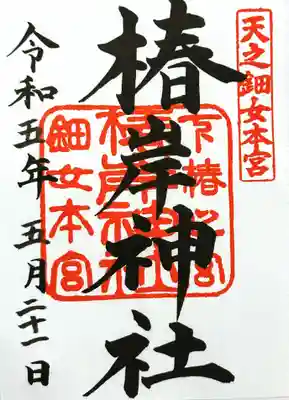 天之鈿女本宮
椿岸神社
鈿女本宮
令和五年五月二十一日